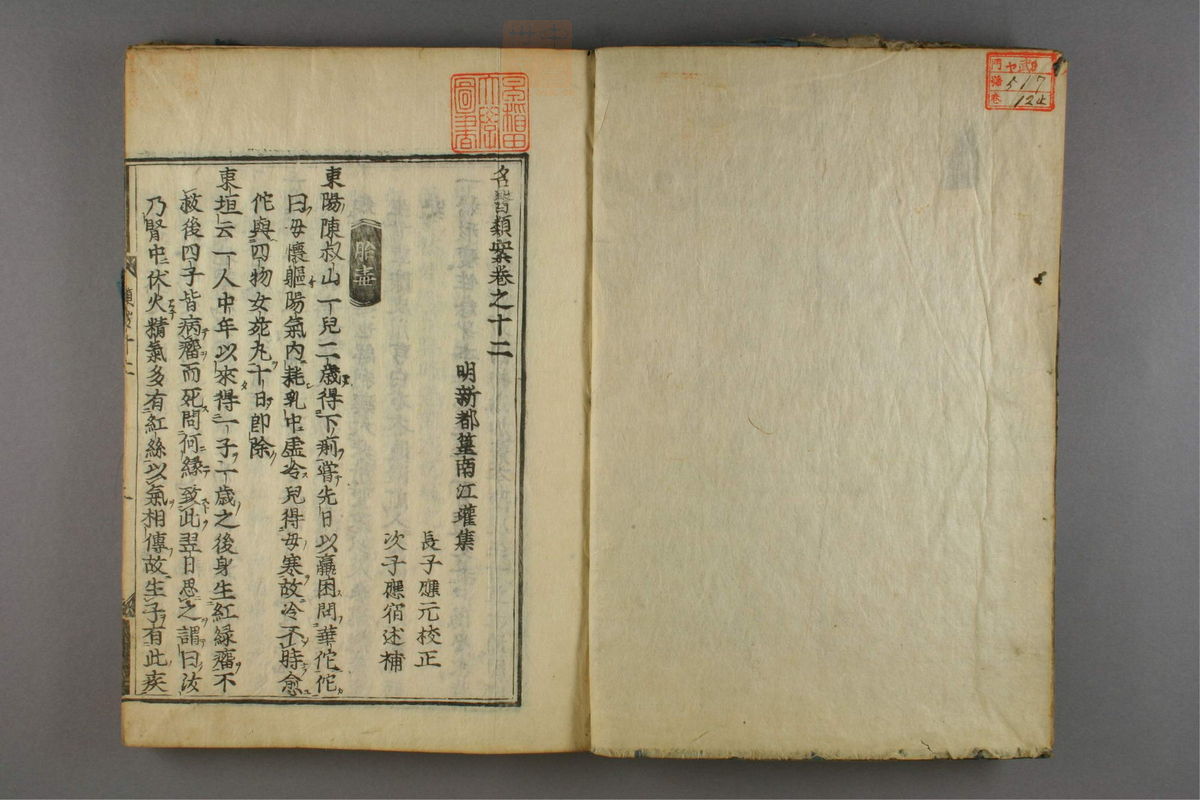 名醫類案卷之十二
明新都篁南江瓘集
長子應元校正
次子應宿述補
胎毒
東陽陳叔山一兒二歲得下痢嘗先日以羸困問華佗佗
曰毋懷軀陽氣內耗乳中虛冷兒得毋寒故冷不時愈
佗與四物女宛丸十日即除
東垣云一人中年以來得一子一歲之後身生紅綠瘤不
救後四子皆病瘤而死問何緣致此翌日思之謂曰汝
乃腎中伏火精氣多有紅絲以氣相傳故生子有此疾
早稲田
大學
圖書
門 ヤ
號 517
卷 12